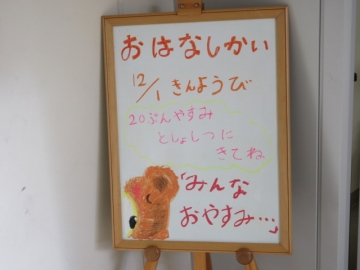 おはなしかい
12/1 きんようび
20ぷんやすみ
としょしつに
きてね
「みんな
おやすみ…」